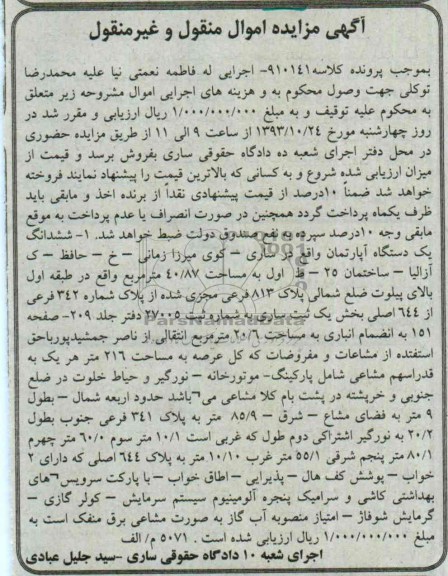 آگهی مزایده اموال منقول و غیرمنقول
بموجب پرونده کلاسه۹۱۰۱۴۱- اجرایی له فاطمه نعمتی نیا علیه محمدرضا
توکلی جهت وصول محکوم به و هزینه های اجرایی اموال مشروحه زیر متعلق
به محکوم علیه توقیف و به مبلغ ۱/۰۰۰/۰۰۰/۰۰۰ ریال ارزیابی و مقرر شد در
روز چهارشنبه مورخ ۱۳۹۳/۱۰/۲۴ از ساعت ۹ الی ۱۱ از طریق مزایده حضوری
در محل دفتر اجرای شعبه ده دادگاه حقوقی ساری بفروش برسد و قیمت از
میزان ارزیابی شده شروع و به کسانی که بالاترین قیمت را پیشنهاد نمایند فروخته
خواهد شد ضمناً ۱۰درصد از قیمت پیشنهادی نقداً از برنده اخذ و مابقی باید
ظرف یکماه پرداخت گردد همچنین در صورت انصراف یا عدم پرداخت به موقع
مابقی وجه ۱۰درصد سپرده به نفع صندوق دولت ضبط خواهد شد. ۱- ششدانگ
یک دستگاه آپارتمان واقع در ساری – کوی میرزا زمانی – خ – حافظ – ک
آزالیا – ساختمان ۲۵ – ط اول به مساحت ۴۰/۸۷ مترمربع واقع در طبقه اول
بالای پیلوت ضلع شمالی پلاک ۸۱۳ فرعی مجزی شده از پلاک شماره ۳۴۲ فرعی
از ۶۴۴ اصلی بخش یک ثبت ساری به شماره ثبت ۲۷۰۰۵ دفتر جلد ۲۰۹- صفحه
۱۵۱ به انضمام انباری به مساحت ۲۰/۶ مترمربع انتقالی از ناصر جمشیدپورباحق
استفتده از مشاعات و مفروضات که کل عرصه به مساحت ۲۱۶ متر هر یک به
قدراسهم مشاعی شامل پارکینگ- موتورخانه – نورگیر و حیاط خلوت در ضلع
جنوبی و خرپشته در پشت بام کلا مشاعی می باشد حدود اربعه شمال – بطول
۹ متر به فضای مشاع – شرق – ۸۵/۹ متر به پلاک ۳۴۱ فرعی جنوب بطول
۲۰/۲ به نورگیر اشتراکی دوم طول که غربی است ۱۰/۱ متر سوم ۶۰/۰ متر چهرم
۸۰/۱ متر پنجم شرقی ۵۵/۱ متر غرب ۱۰/۱۰ متر به پلاک ۶۴۴ اصلی که دارای ۲
خواب – پوشش کف هال – پذیرایی – اطاق خواب – با پارکت سرویس های
بهداشتی کاشی و سرامیک پنجره آلومینیوم سیستم سرمایش – کولر گازی –
گرمایش شوفاژ – امتیاز منصوبه آب گاز به صورت مشاعی برق منفک است به
مبلغ ۱/۰۰۰/۰۰۰/۰۰۰ ریال ارزیابی شده است . ۵۰۷۱ م/ الف
اجرای شعبه ۱۰ دادگاه حقوقی ساری –سید جلیل عبادی